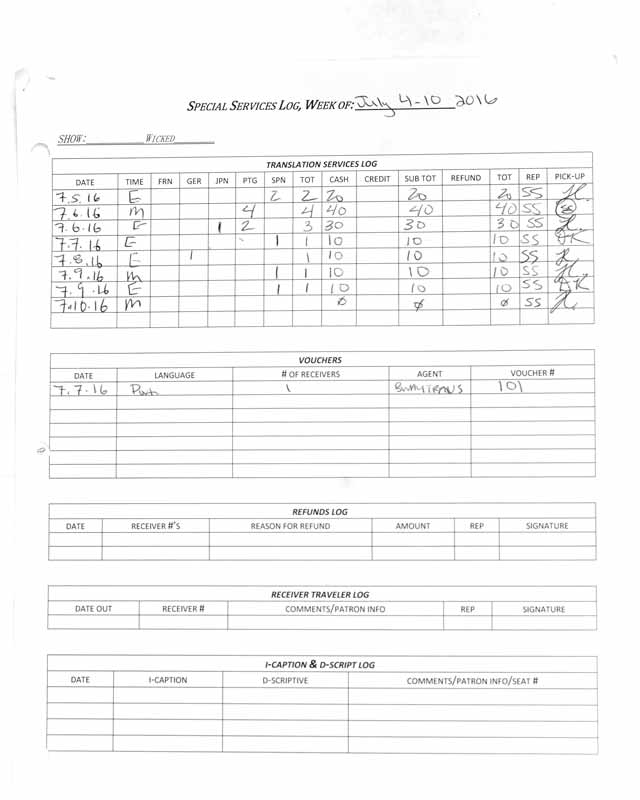 SPECIAL SERVICES LOG, WEEK OF: July 4-10 2016
SHOW: WICKED
TRANSLATION SERVICES LOG
DATE TIME FRN GER JPN PTG SPN TOT CASH CREDIT SUB TOT REFUND TOT REP PICK-UP
7.5.16 E 2 2 20 20 20 SS
7.6.16 M 4 4 40 40 40 SS
7.6.16 E 1 2 3 30 30 30 SS
7.7.16 E 1 1 10 10 10 SS
7.8.16 E 1 1 10 10 10 SS
7.9.16 M 1 1 10 10 10 SS
7.9.16 E 1 1 10 10 10 SS
7.10.16 M ø ø ø SS
VOUCHERS
DATE LANGUAGE # OF RECEIVERS AGENT VOUCHER #
7.7.16 1 101
REFUNDS LOG
DATE RECEIVER #'S REASON FOR REFUND AMOUNT REP SIGNATURE
RECEIVER TRAVELER LOG
DATE OUT RECEIVER # COMMENTS/PATRON INFO REP SIGNATURE
I-CAPTION & D-SCRIPT LOG
DATE I-CAPTION D-SCRIPTIVE COMMENTS/PATRON INFO/SEAT #